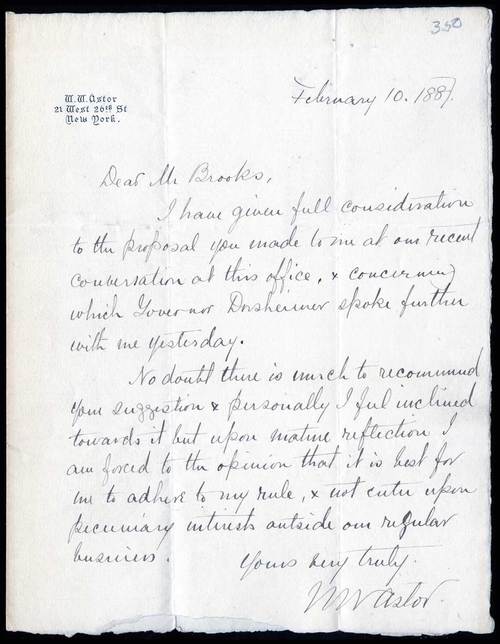 350
W. W. Astor
21 West 26th St
New York.
February 10. 1887.
Dear Mr Brooks,
I have given full consideration
to the proposal you made to me at our recent
conversation at this office, & concerning
which Governor Dorsheimer spoke further
with me yesterday.
No doubt there is much to recommend
your suggestion & personally I feel inclined
towards it but upon mature reflection I
am forced to the opinion that it is best for
me to adhere to my rule, & not enter upon
pecuniary interests outside our regular
business.
Yours very truly.
W W Astor.